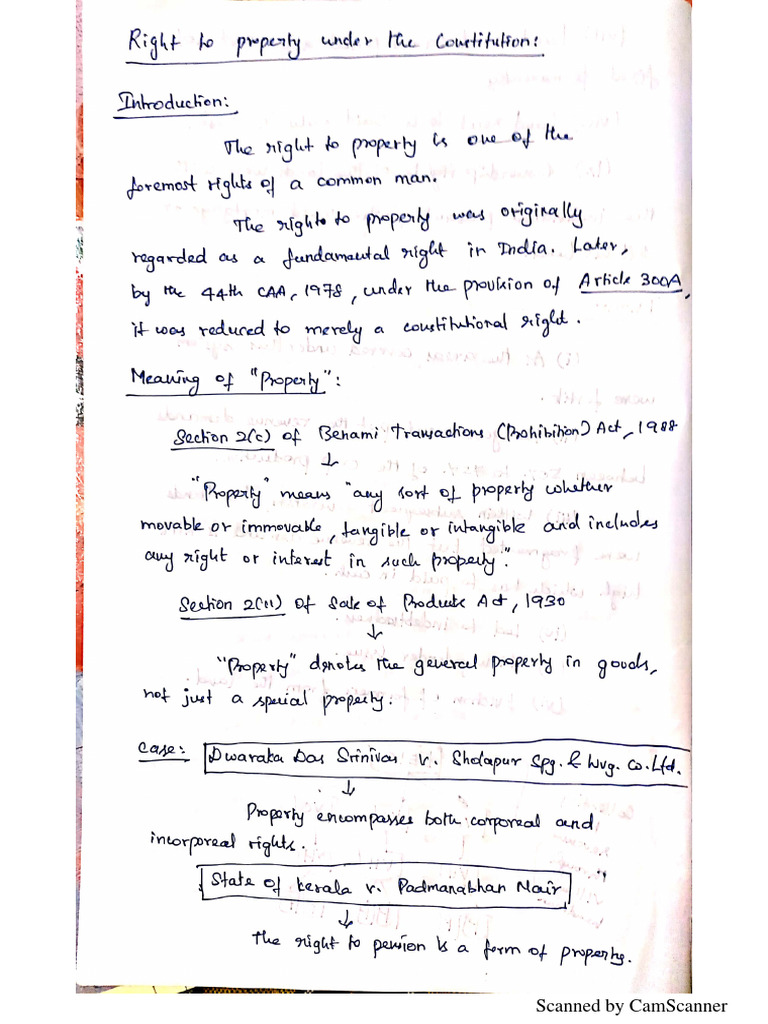 Right to property under the Constitution:
Introduction:
The right to property is one of the
foremost rights of a common man.
The rights to property was originally
regarded as a fundamental right in India. Later,
by the 44th CAA, 1978, under the provision of Article 300A,
it was reduced to merely a constitutional right.
Meaning of "Property":
Section 2(c) of Benami Transactions (Prohibition) Act, 1988
↓
"Property" means "any sort of property whether
movable or immovable, tangible or intangible and includes
any right or interest in such property."
Section 2(11) of Sale of Products Act, 1930
↓
"Property" denotes the general property in goods,
not just a special property.
Case: Dwaraka Das Srinivas v. Sholapur Spg. & Wvg. Co. Ltd.
↓
Property encompasses both corporeal and
incorporeal rights.
State of Kerala v. Padmanabhan Nair
↓
The right to pension is a form of property.
Scanned by CamScanner